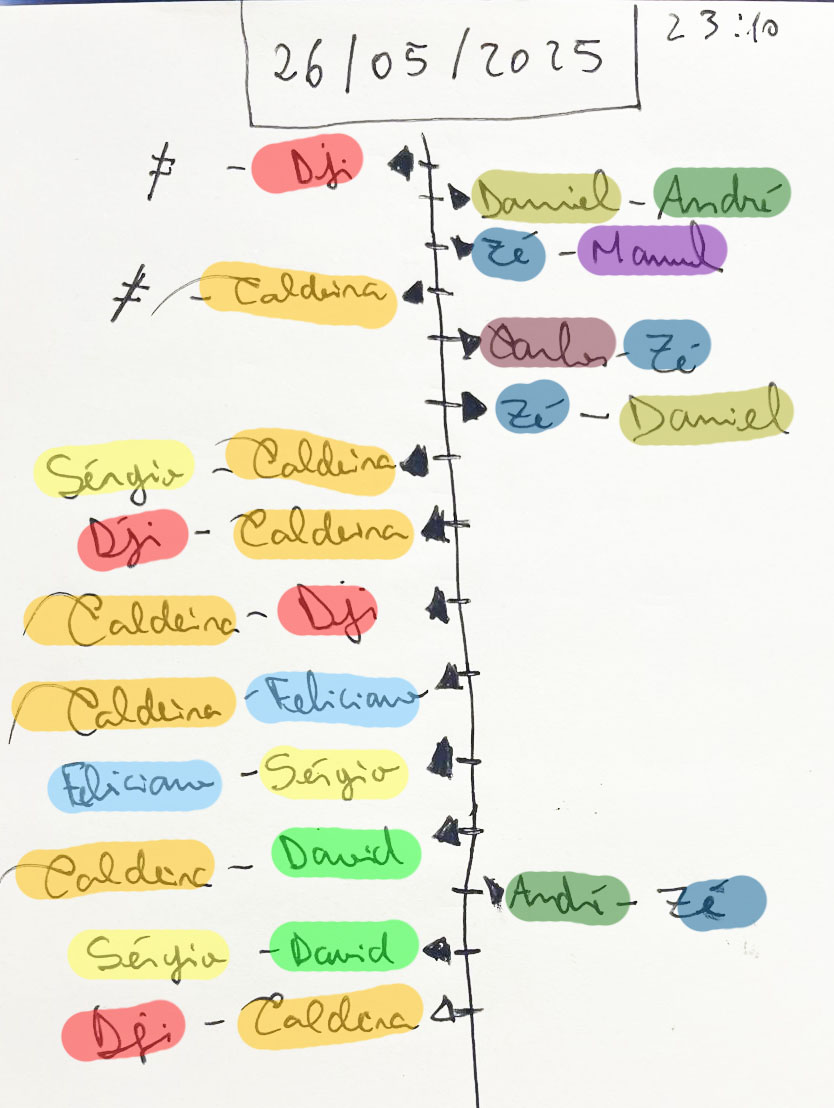 23:10
26/05/2025
≠ - Dji
Daniel - André
Zé - Manuel
≠ - Caldeira
Carlos - Zé
Zé - Daniel
Sérgio - Caldeira
Dji - Caldeira
Caldeira - Dji
Caldeira - Feliciano
Feliciano - Sérgio
Caldeira - David
André - Zé
Sérgio - David
Dji - Caldeira